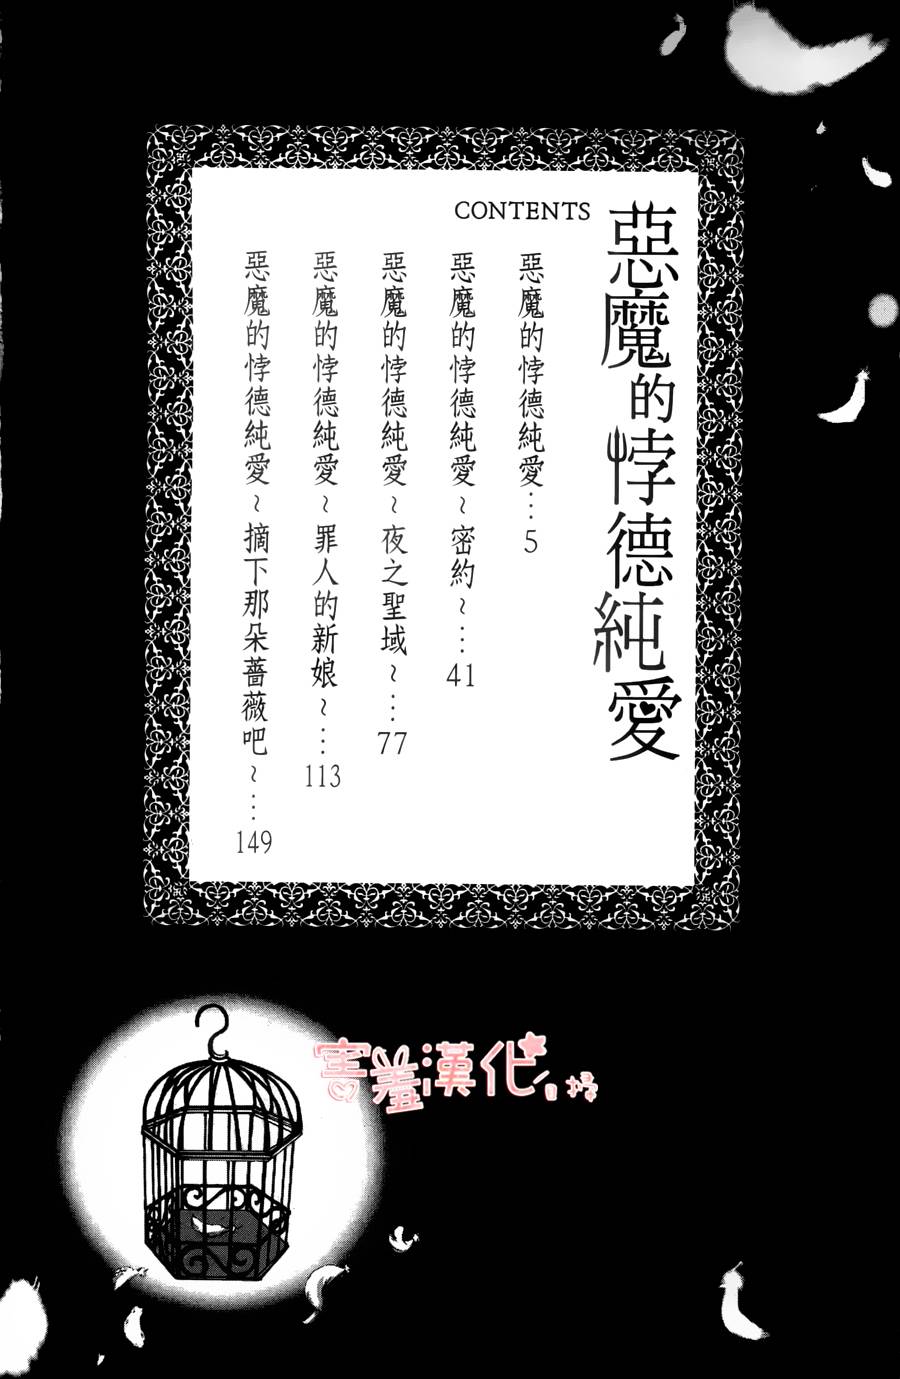 惡魔的悖德純愛
CONTENTS
惡魔的悖德純愛…5
惡魔的悖德純愛～密約～…41
惡魔的悖德純愛～夜之聖域～…77
惡魔的悖德純愛～罪人的新娘～…113
惡魔的悖德純愛～摘下那朵薔薇吧～…149
害羞漢化自掃